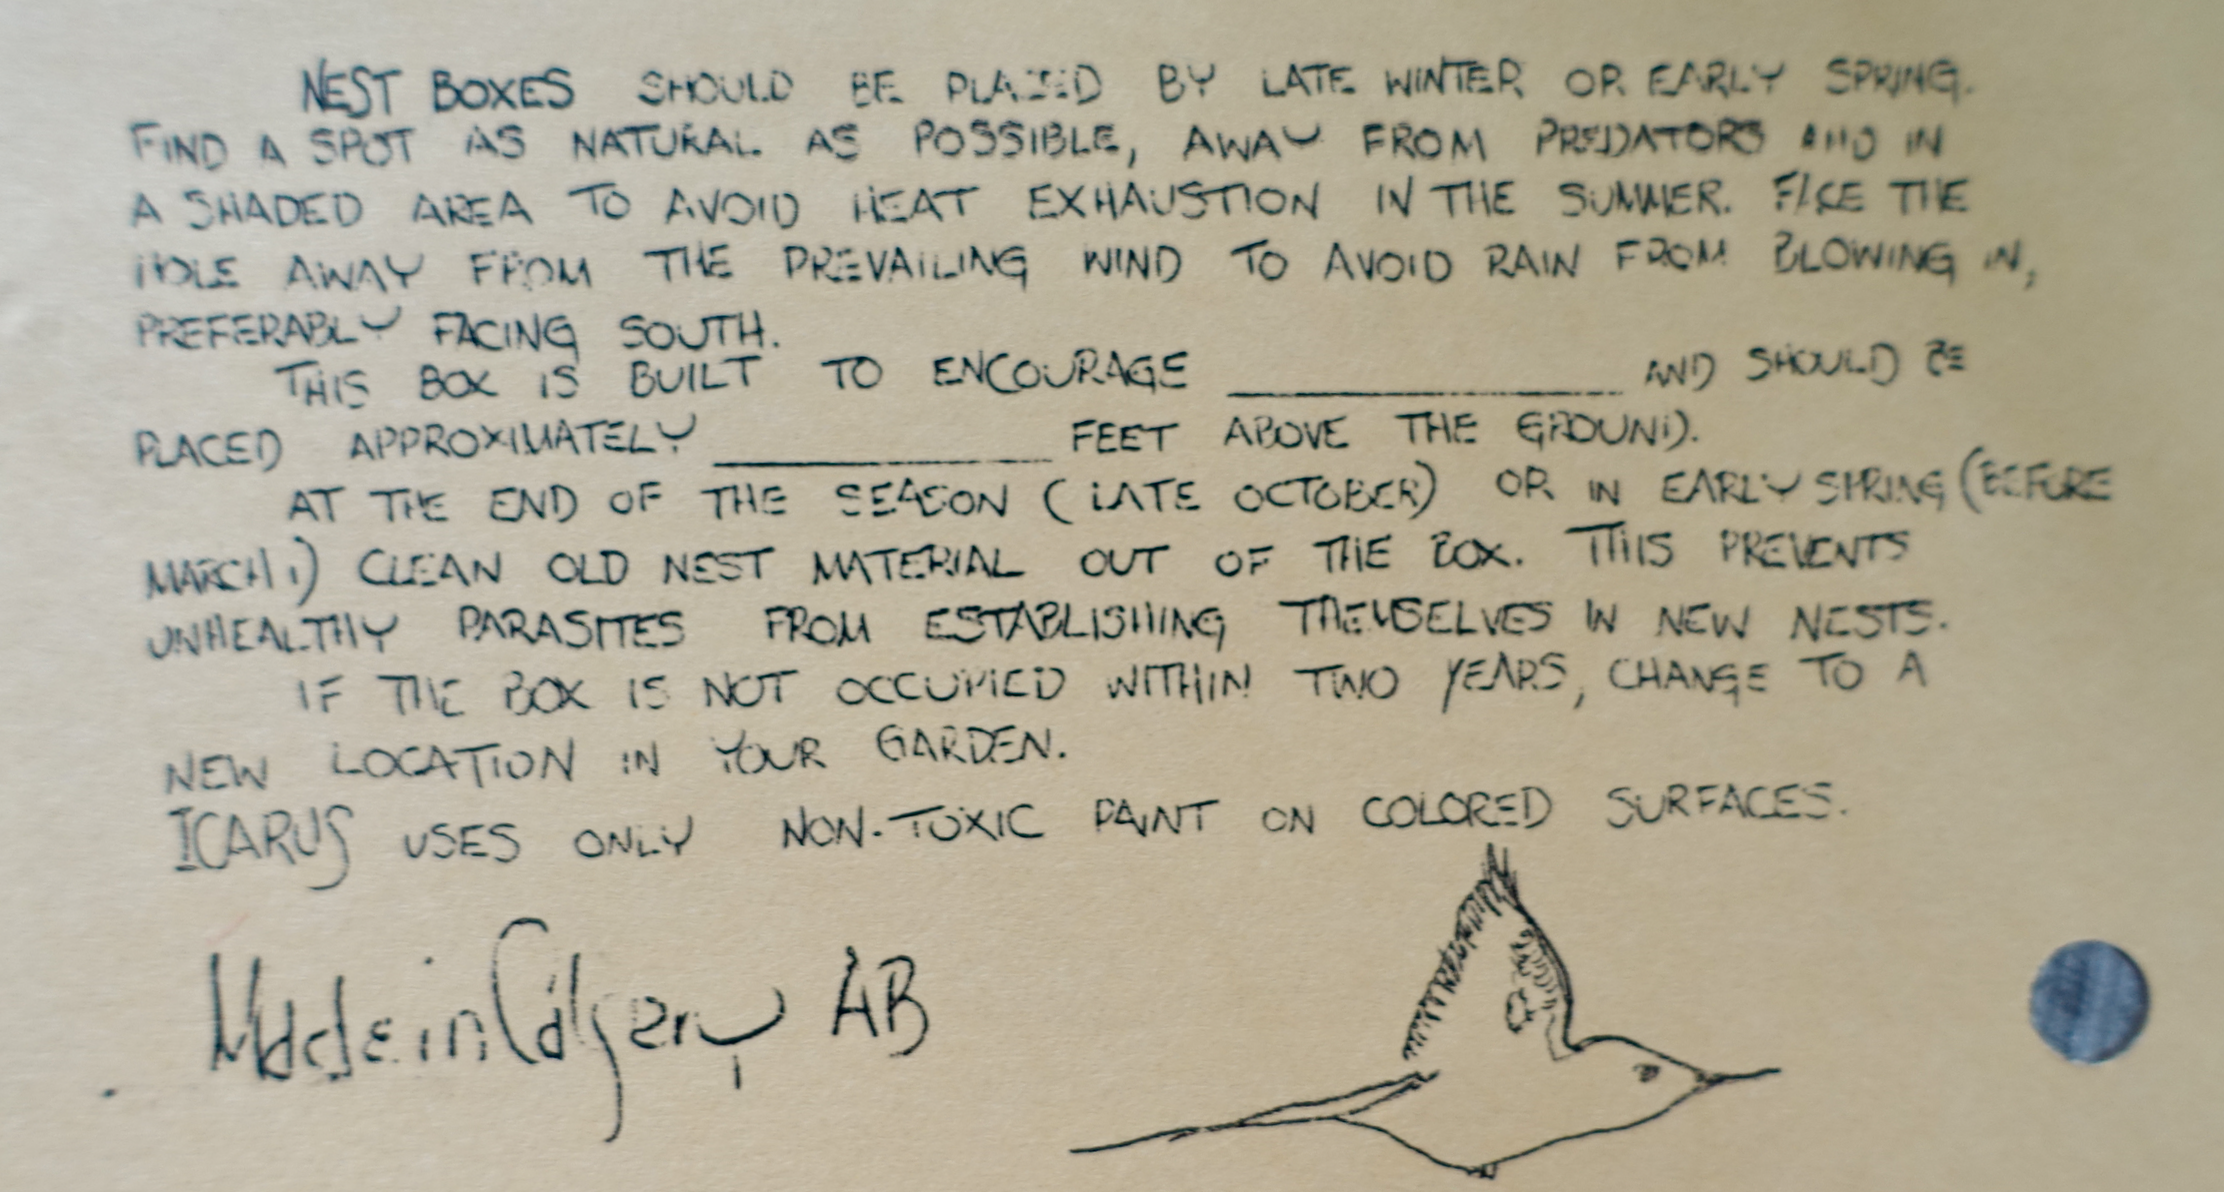 NEST BOXES SHOULD BE PLACED BY LATE WINTER OR EARLY SPRING.
FIND A SPOT AS NATURAL AS POSSIBLE, AWAY FROM PREDATORS AND IN
A SHADED AREA TO AVOID HEAT EXHAUSTION IN THE SUMMER. FACE THE
HOLE AWAY FROM THE PREVAILING WIND TO AVOID RAIN FROM BLOWING IN,
PREFERABLY FACING SOUTH.
THIS BOX IS BUILT TO ENCOURAGE ____________ AND SHOULD BE
PLACED APPROXIMATELY __________ FEET ABOVE THE GROUND.
AT THE END OF THE SEASON (LATE OCTOBER) OR IN EARLY SPRING (BEFORE
MARCH 1) CLEAN OLD NEST MATERIAL OUT OF THE BOX. THIS PREVENTS
UNHEALTHY PARASITES FROM ESTABLISHING THEMSELVES IN NEW NESTS.
IF THE BOX IS NOT OCCUPIED WITHIN TWO YEARS, CHANGE TO A
NEW LOCATION IN YOUR GARDEN.
ICARUS USES ONLY NON-TOXIC PAINT ON COLORED SURFACES.
Made in Calgary AB